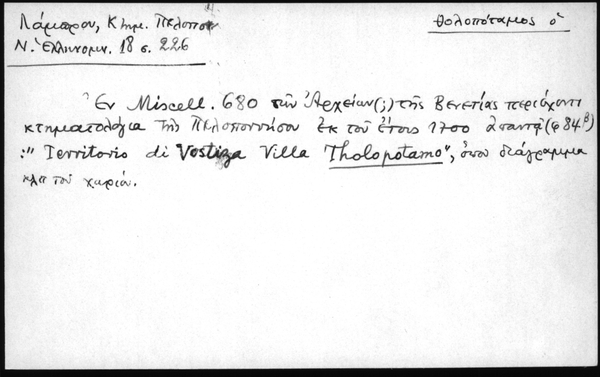 Λάμπρου, Κτημ. Πελοπον
Ν. Ἑλληνομν. 18 σ. 226
Θολοπόταμος ὁ
Ἐν Miscell. 680 τῶν Ἀρχείων(;) τῆς Βενετίας περιέχοντι
κτηματολόγια τῆς Πελοποννήσου ἐκ τοῦ ἔτους 1700 ἀπαντᾷ (φ 84β)
:" Territorio di Vostiza Villa Tholopotamo", ὅπου διάγραμμα
κλπ τοῦ χωρίου.